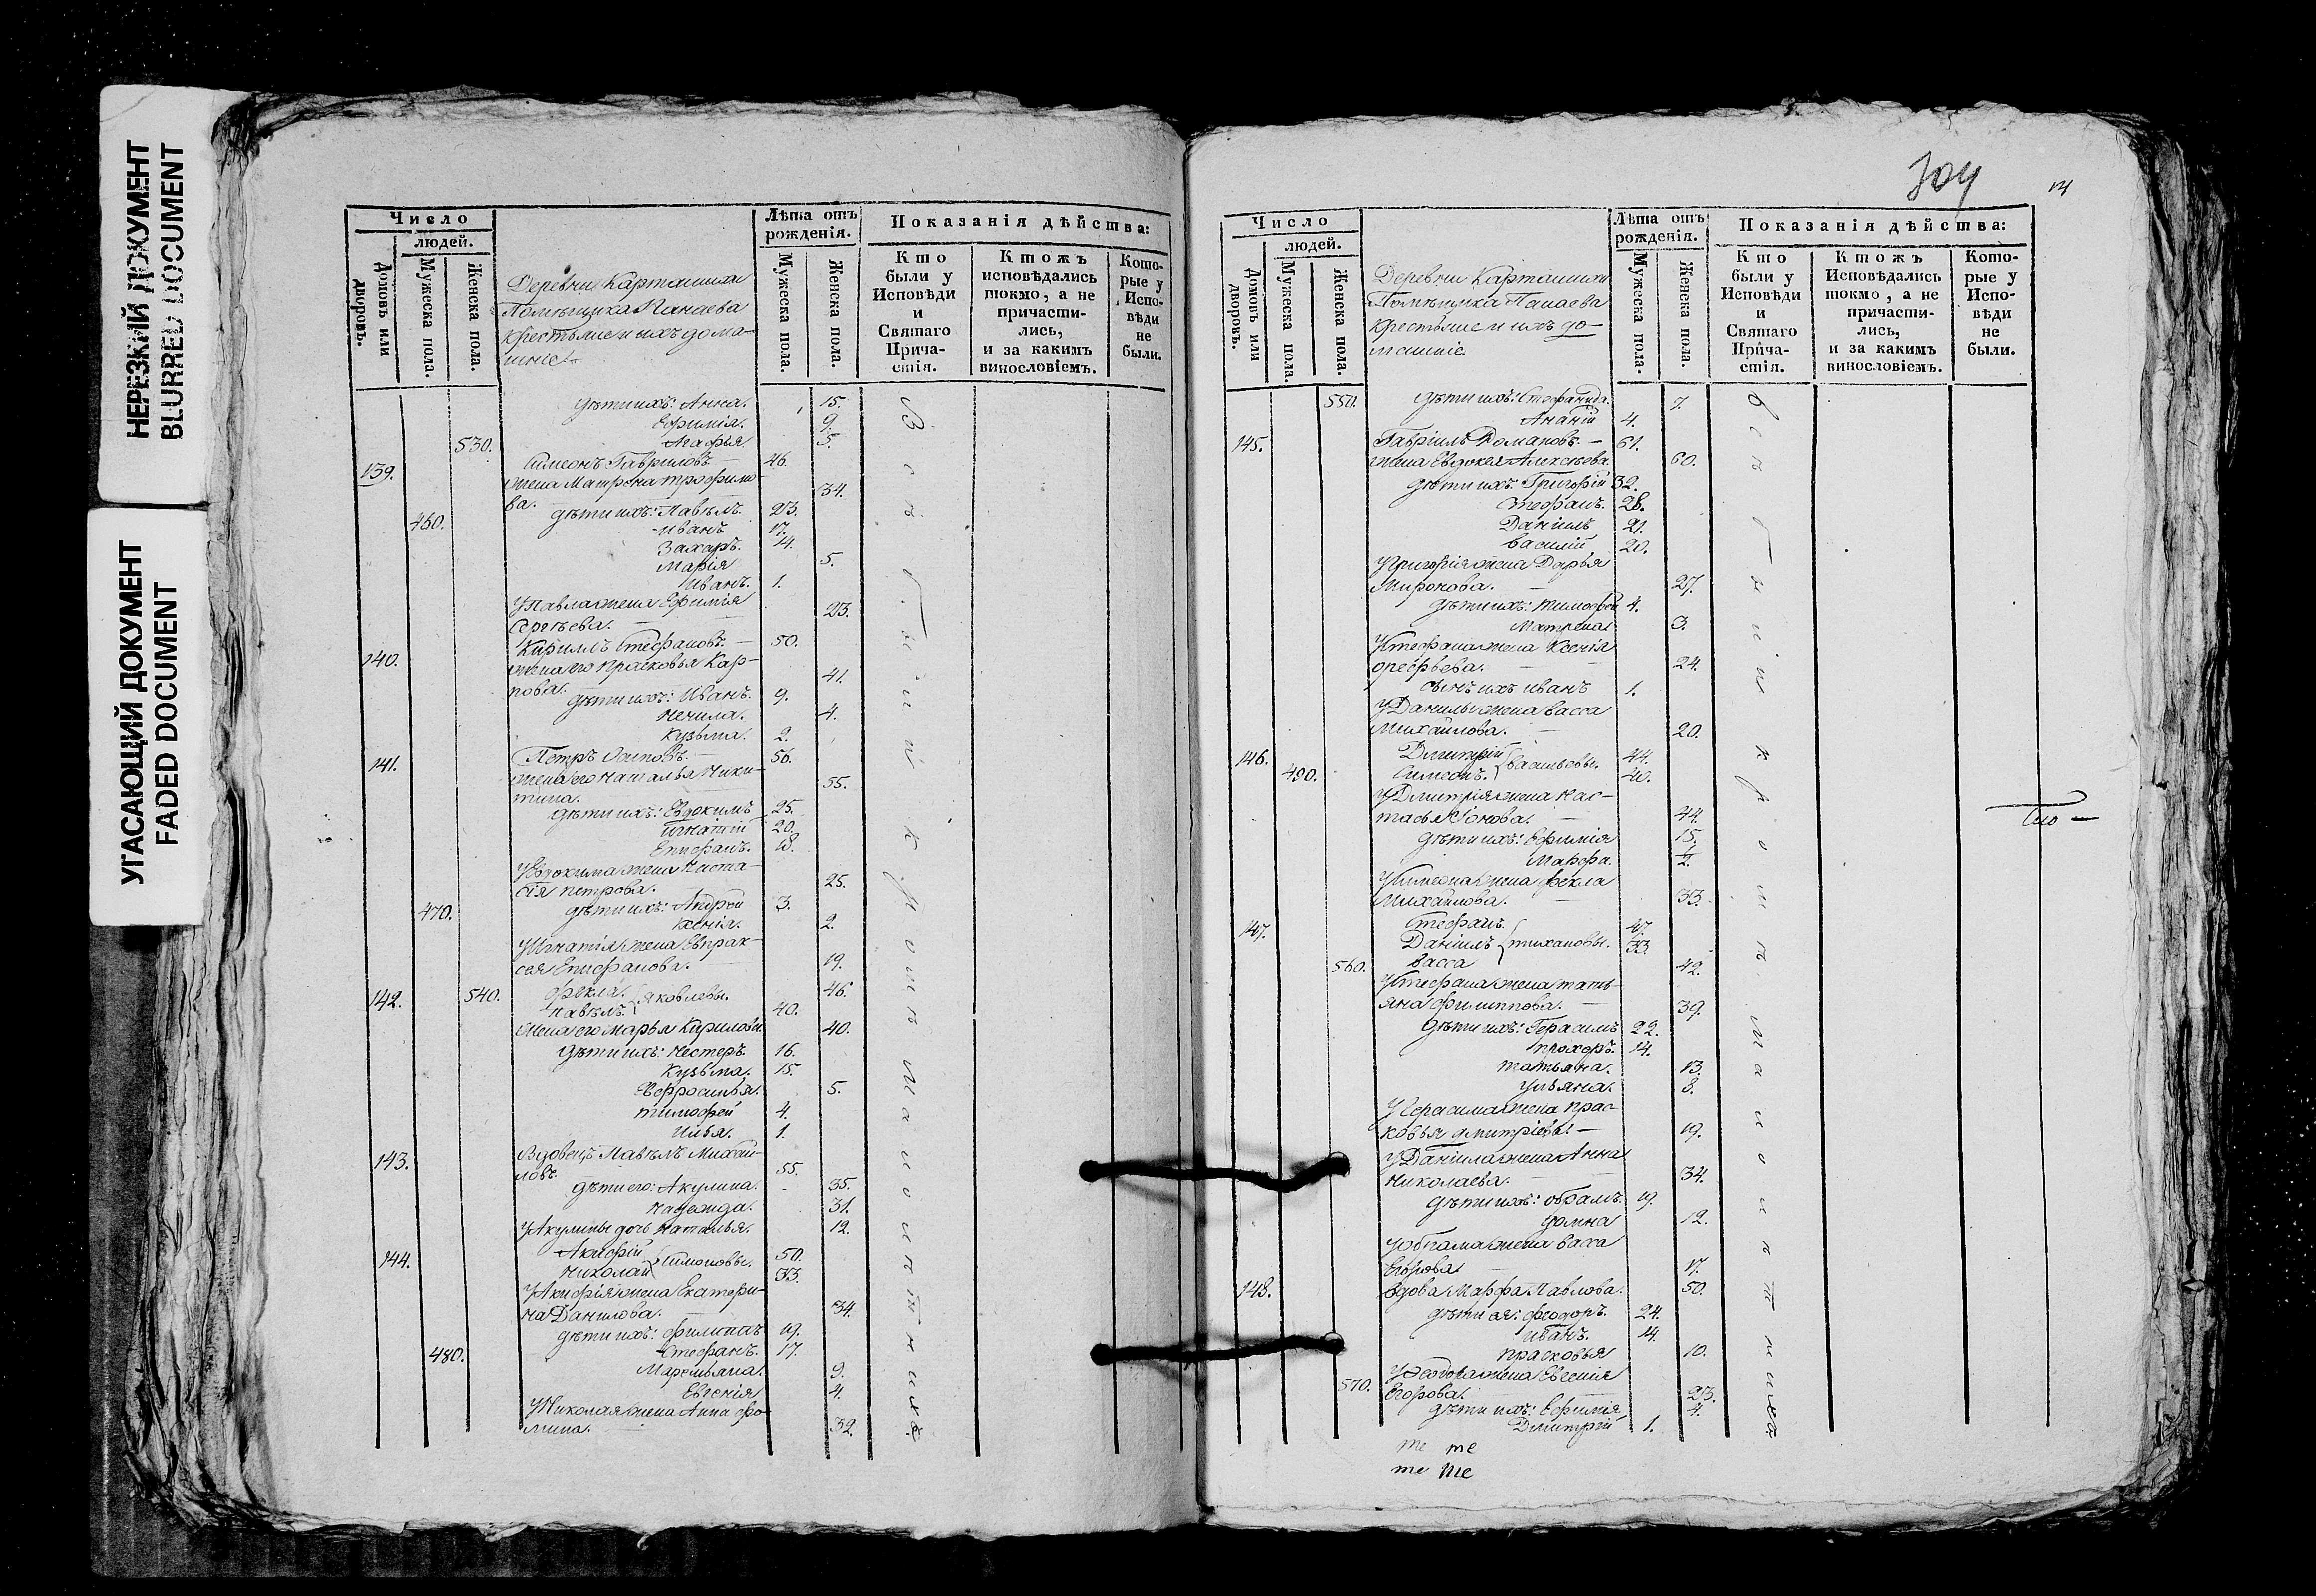 НЕРЕЗКИЙ ДОКУМЕНТ
BLURRED DOCUMENT
УГАСАЮЩИЙ ДОКУМЕНТ
FADED DOCUMENT
Число
людей.
Домовъ или дворовъ.
Мужеска пола.
Женска пола.
Деревни Карташихи
Помѣщика Панаева
крестьяне и ихъ дома-
шніе
Лѣта отъ рожденія.
Мужеска пола.
Женска пола.
Показанія дѣйства:
Кто были у Исповѣди и Святаго Прича- стія.
Ктожъ исповѣдались токмо, а не причасти- лись, и за какимъ винословіемъ.
Кото- рые у Испо- вѣди не были.
дѣти ихъ: Анна. 15.
Ефимія. 9.
530. Агафья 5.
139. Симеонъ Гавриловъ. 46.
жена Матрена Трофимо-
ва. 34.
460. дѣти ихъ: Павелъ. 23.
Иванъ. 17.
Захаръ. 14.
Марія 5.
Иванъ. 1.
У Павла жена Ефимія
Сергѣева. 23.
140. Кириллъ Стефановъ. 50.
жена его Прасковья Кар-
пова. 41.
дѣти ихъ: Иванъ. 9.
Ненила. 4.
Кузьма. 2.
141. Петръ Осиповъ. 56.
жена его Наталья Ники-
тина. 55.
дѣти ихъ: Евдокимъ 25.
Игнатій 20.
Епифанъ. 18.
У Евдокима жена Наста-
сія Петрова. 25.
470. дѣти ихъ: Андрей 3.
Ксенія. 2.
У Игнатія жена Евпрак-
сея Епифанова. 19.
142. 540. Фекла. 46.
Павелъ. Яковлевы. 40.
Жена его Марья Кирилова. 40.
дѣти ихъ: Нестеръ. 16.
Кузьма. 15.
Евфросинья. 5.
Тимофей 4.
Илья. 1.
143. Вдовецъ Павелъ Михай-
ловъ. 55.
дѣти его: Акулина. 35.
Надежда. 31.
У Акулины дочь Наталья. 12.
144. Акифій 50.
Николай Симоновы. 33.
У Акифія жена Екатери-
на Данилова. 34.
дѣти ихъ: Филиппъ 19.
480. Стефанъ. 17.
Маремьяна. 9.
Евгенія 4.
У Николая жена Анна Фо-
мина. 32.
304
14
Число
людей.
Домовъ или дворовъ.
Мужеска пола.
Женска пола.
Деревни Карташихи
Помѣщика Панаева
крестьяне и ихъ до-
машніе.
Лѣта отъ рожденія.
Мужеска пола.
Женска пола.
Показанія дѣйства:
Кто были у Исповѣди и Святаго Прича- стія.
Ктожъ Исповѣдались токмо, а не причасти- лись, и за какимъ винословіемъ.
Кото- рые у Испо- вѣди не были.
550. дѣти ихъ: Стефанида. 7.
Ананій 4.
145. Гавріилъ Романовъ. 61.
жена Евдокея Алексѣева. 60.
дѣти ихъ: Григорій 32.
Стефанъ. 28.
Даніилъ 21.
Василій 20.
У Григорія жена Дарья
Миронова. 27.
дѣти ихъ: Тимофей 4.
Матрена 3.
У Стефана жена Ксенія
Орефьева. 24.
сынъ ихъ Иванъ 1.
У Данилы жена Васса
Михайлова. 20.
146. Димитрій 44.
490. Симеонъ. Васильевы. 40.
У Дмитрія жена Нас-
тасья Іонова. 44.
дѣти ихъ: Ефимія 15.
Марфа. 1/2.
У Симеона жена Фекла
Михайлова. 33.
147. Стефанъ. 47.
Даніилъ Тихановы. 33.
560. Васса 42.
У Стефана жена Тать-
яна Филиппова. 39.
дѣти ихъ: Герасимъ 22.
Прохоръ. 14.
Татьяна. 13.
Ульяна. 8.
У Герасима жена Прас-
ковья Дмитріева. 19.
У Даніила жена Анна
Николаева. 34.
дѣти ихъ: Обрамъ. 19.
Домна 12.
У Обрама жена Васса
Егорова 17.
148. Вдова Марфа Павлова. 50.
дѣти ея: Феодоръ. 24.
Иванъ. 14.
Прасковья 10.
У Феодора жена Евгенія
570. Егорова. 23.
дѣти ихъ: Ефимія 4.
Димитрій 1.
те те
те те